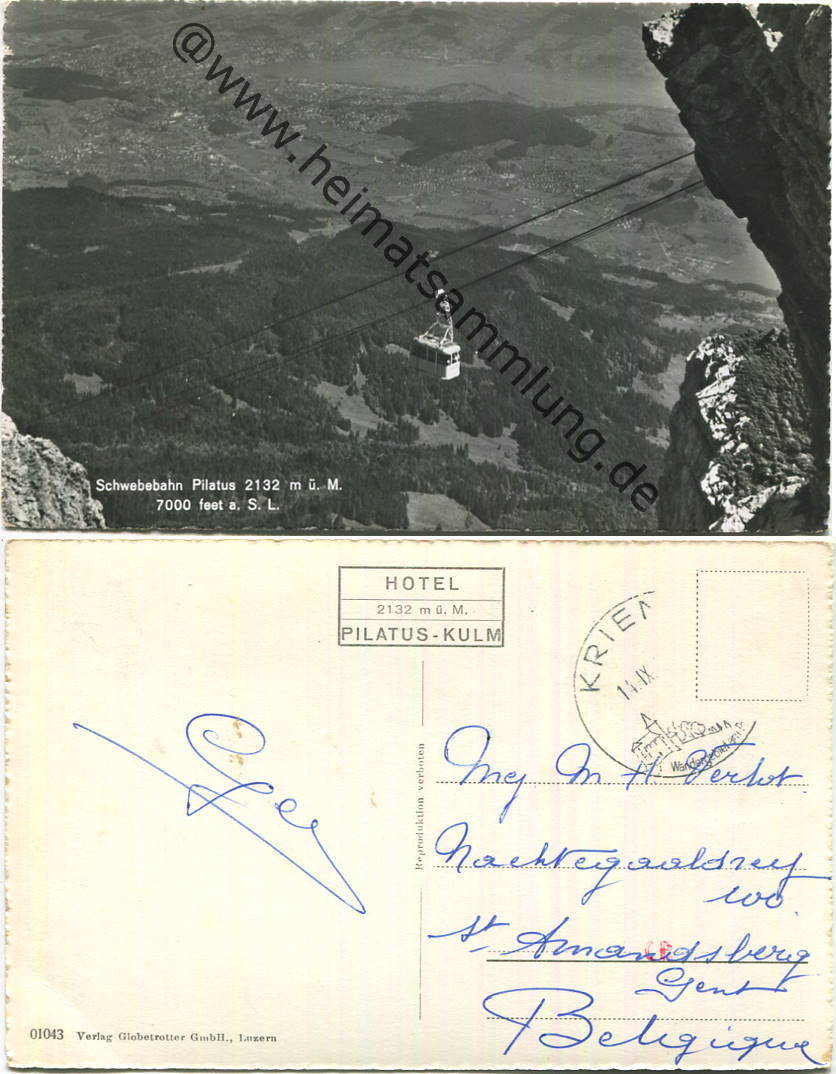 @www.heimatsammlung.de
Schwebebahn Pilatus 2132 m ü. M.
7000 feet a. S. L.
HOTEL
2132 m ü. M.
PILATUS-KULM
KRIEN
14.IX
Wandergebiet am P
Reproduktion verboten
Mej M H
Nachtegaaldreef
100
St Amandsberg
Gent
Belgique
01043 Verlag Globetrotter GmbH., Luzern